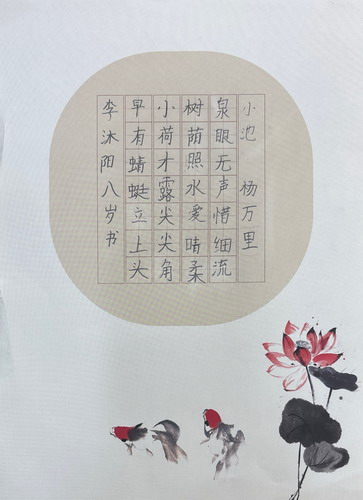 小池 杨万里
泉眼无声惜细流
树荫照水爱晴柔
小荷才露尖尖角
早有蜻蜓立上头
李沐阳八岁书